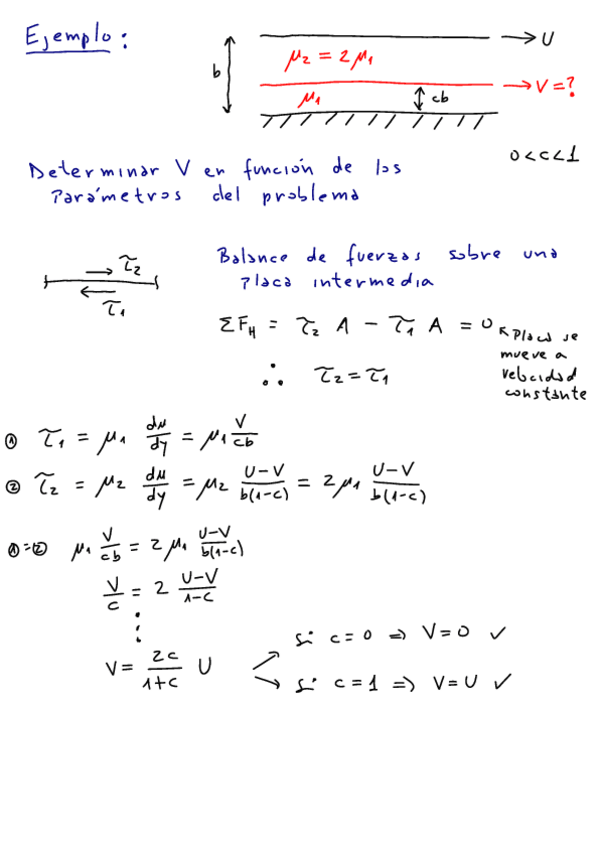 Ejemplo:
U
μ₂ = 2μ₁
b
V=?
μ₁
cb
0<c<1
Determinar V en función de los
Parámetros del problema
τ₂
τ₁
Balance de fuerzas sobre una
placa intermedia
ΣF_H = τ₂ A - τ₁ A = 0
Placa se
mueve a
velocidad
constante
∴ τ₂ = τ₁
① τ₁ = μ₁ du/dy = μ₁ V/cb
② τ₂ = μ₂ du/dy = μ₂ (U-V)/b(1-c) = 2μ₁ (U-V)/b(1-c)
①=② μ₁ V/cb = 2μ₁ (U-V)/b(1-c)
V/c = 2 (U-V)/(1-c)
⋮
si c=0 ⇒ V=0 ✓
V = 2c/(1+c) U
si c=1 ⇒ V=U ✓